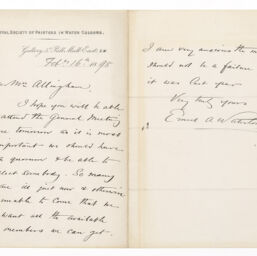 ROYAL SOCIETY OF PAINTERS IN WATER COLOURS,
Gallery 5 Pall Mall East, S.W.
Feb. 16th 1895
Dear Mrs Allingham,
I hope you will be able
to attend the General Meeting
here tomorrow as it is most
important we should have
a quorum & be able to
elect somebody. So many
are ill just now & otherwise
unable to come that we
want all the available
members we can get.
I am very anxious the meeting
should not be a failure as
it was last year
Very truly yours
Ernest A Waterlow